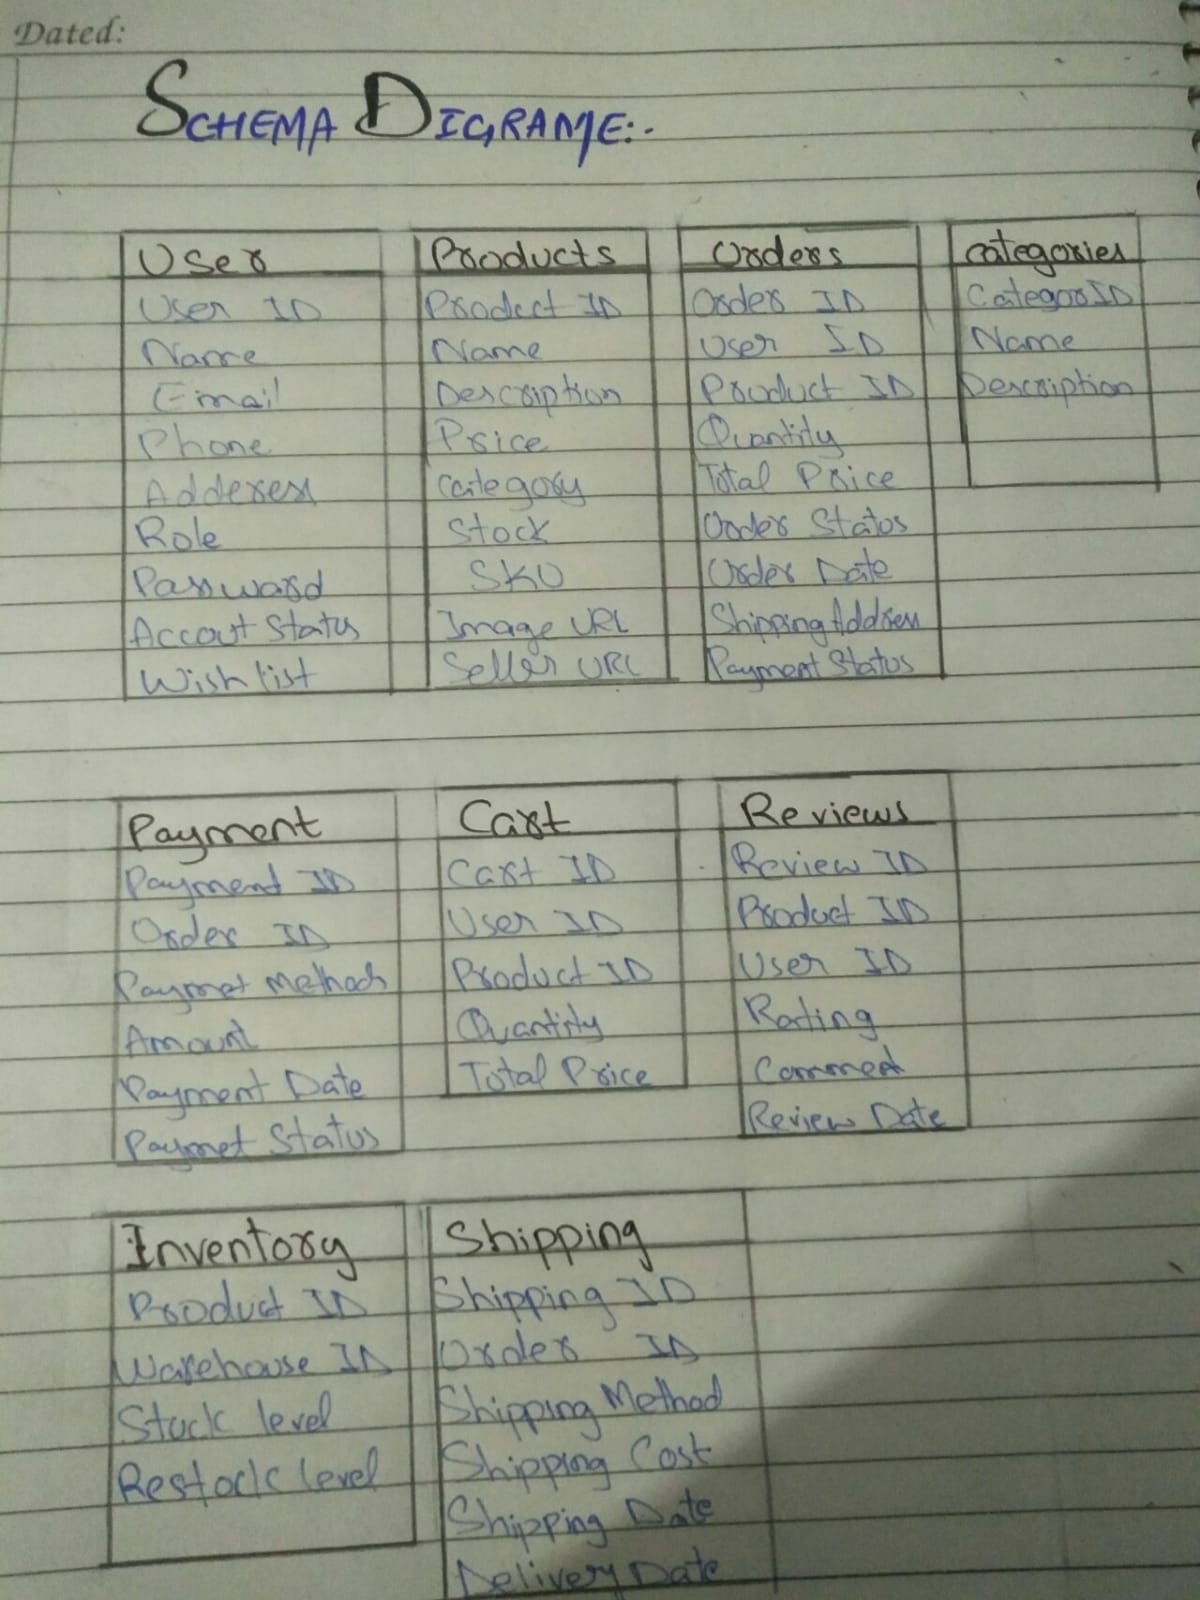 Dated:
SCHEMA DIGRAME:-
User
User ID
Name
Email
Phone
Adderess
Role
Password
Accout Status
Wish list
Products
Product ID
Name
Description
Price
Category
Stock
SKU
Image URL
Seller URL
Orders
Order ID
User ID
Product ID
Quantity
Total Price
Order Status
Order Date
Shipping Address
Payment Status
categories
CategorID
Name
Description
Payment
Payment ID
Order ID
Paymet Methods
Amount
Payment Date
Paymet Status
Cart
Cart ID
User ID
Product ID
Quantity
Total Price
Reviews
Review ID
Product ID
User ID
Rating
Commet
Review Date
Inventory
Product ID
Warehouse ID
Stock level
Restock level
Shipping
Shipping ID
Order ID
Shipping Method
Shipping Cost
Shipping Date
Delivery Date